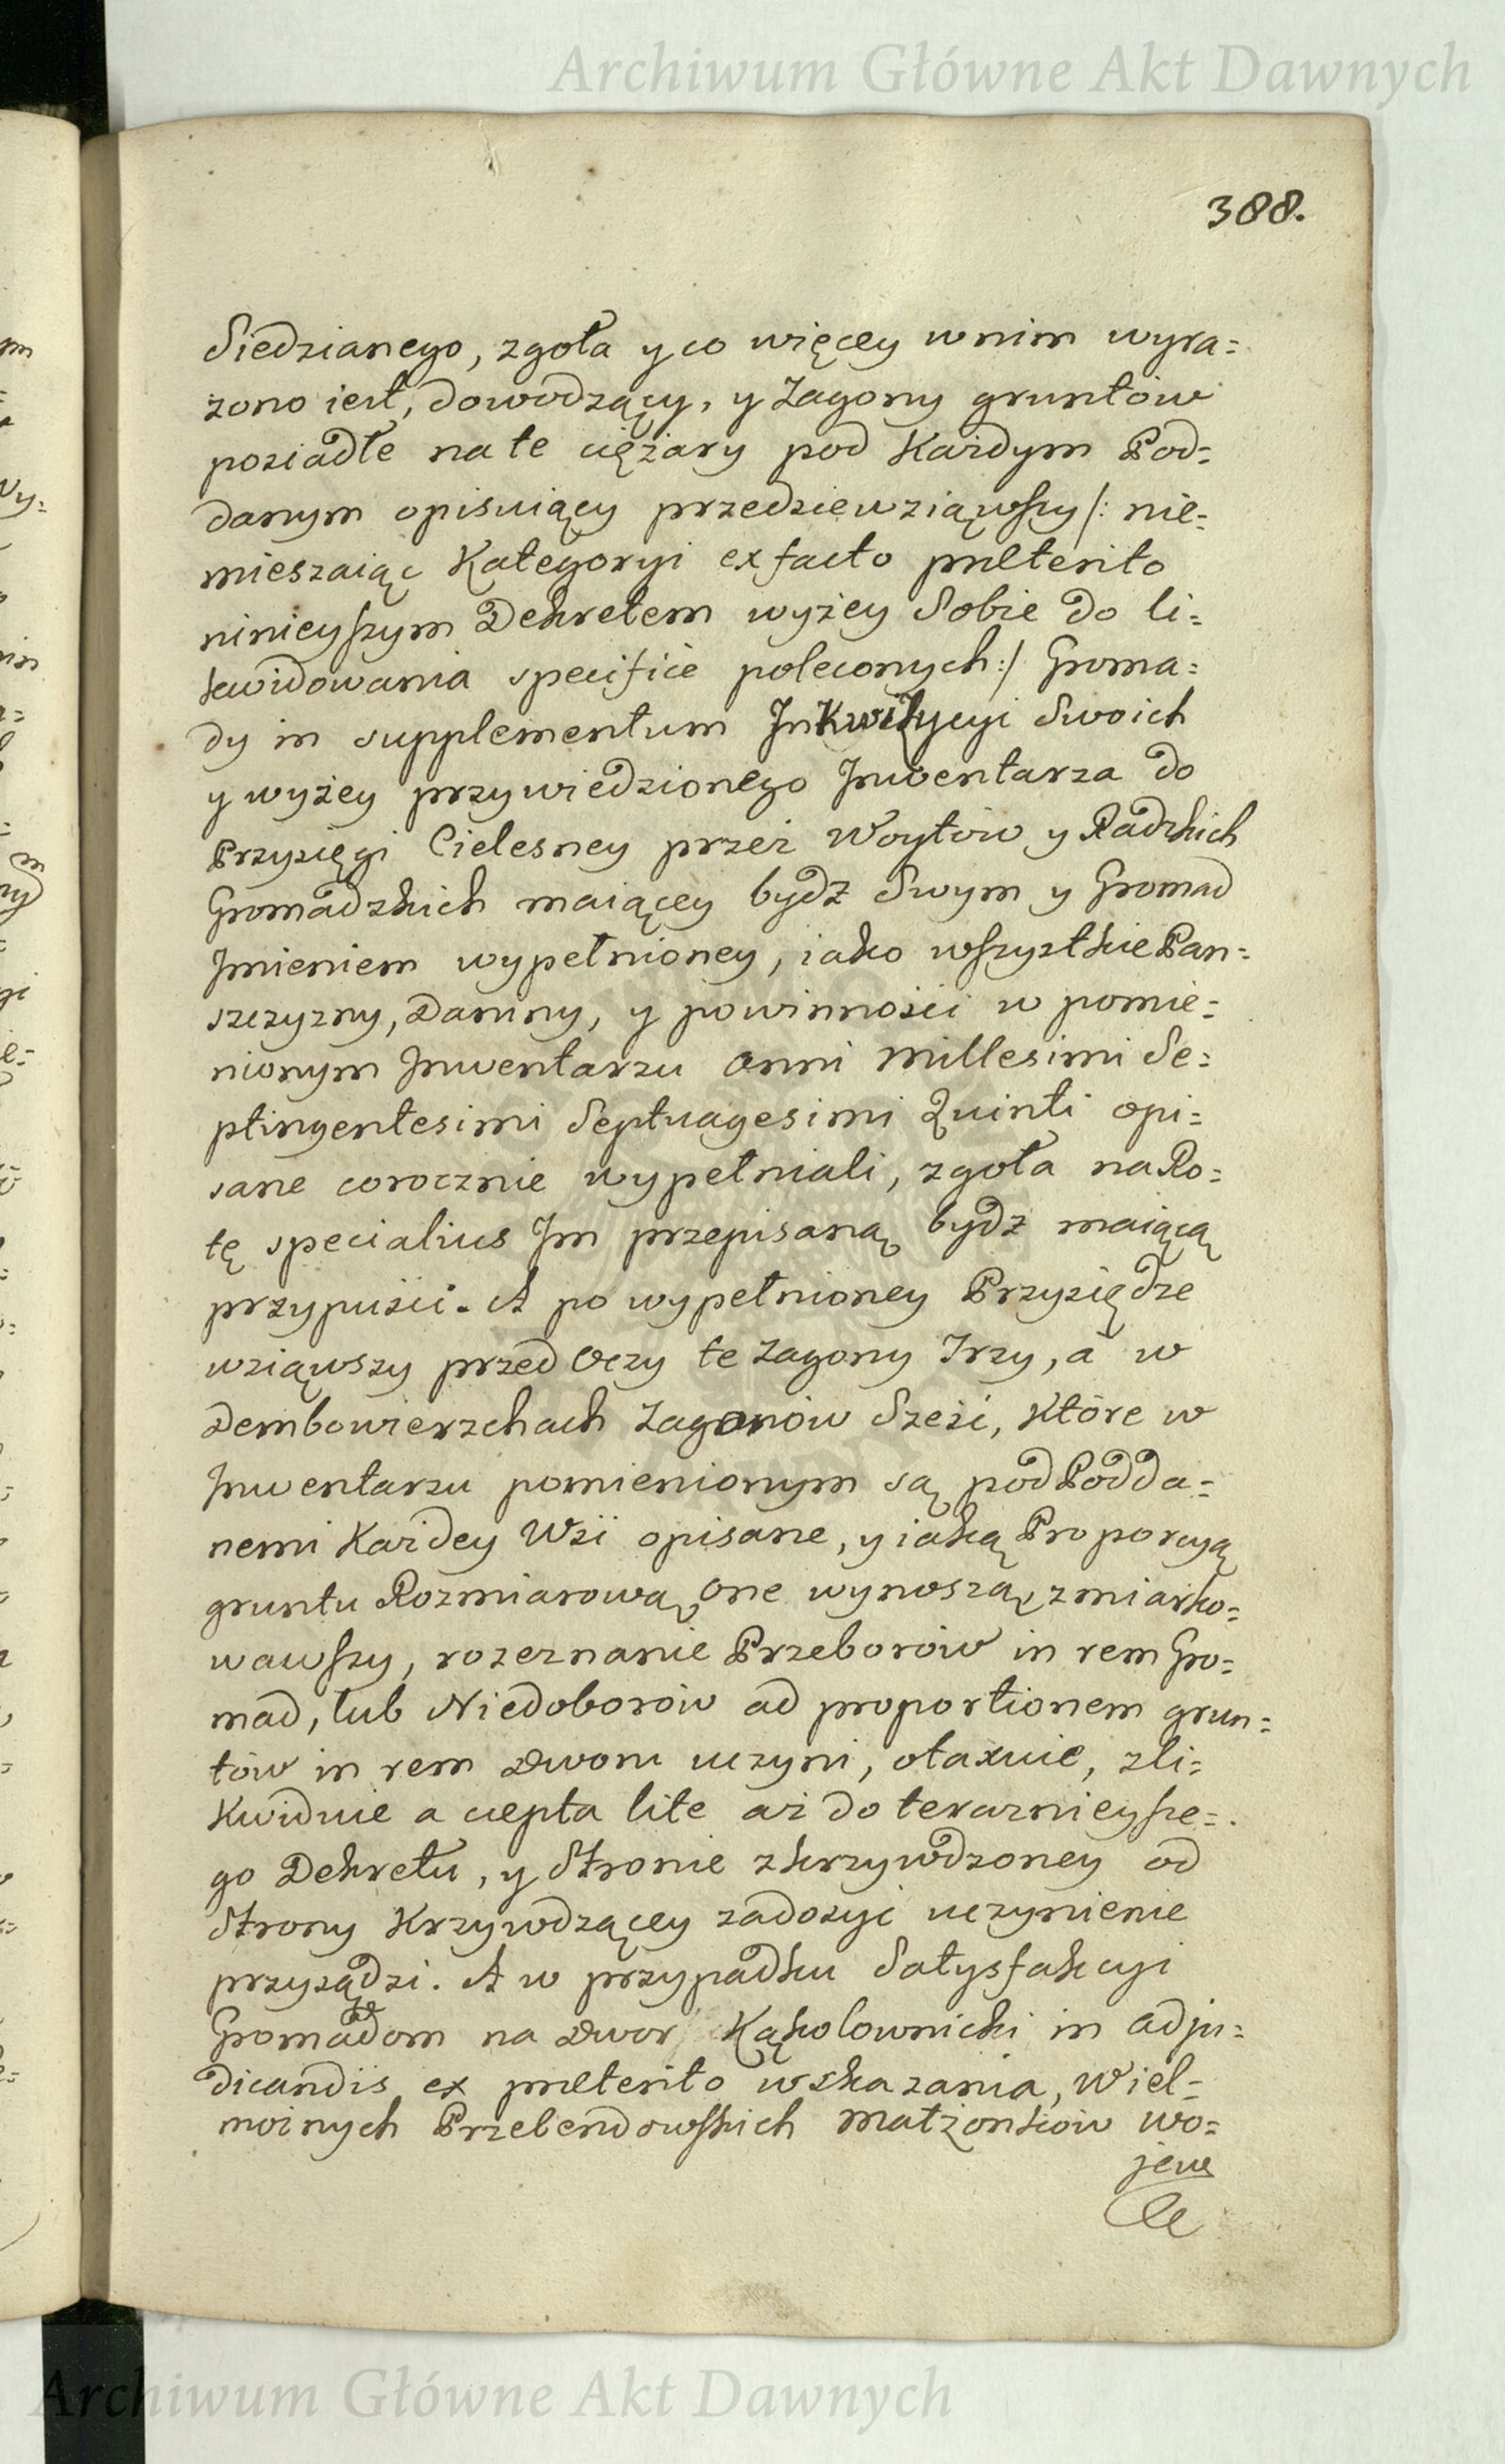 Archiwum Główne Akt Dawnych
388.
Siedzianego, zgoła y co więcey w nim wyra=
zono iest, dowodzący, y Zagony gruntów
posiadłe na te ciężary pod Kazdym Pod=
danym opisuiący przedziewziąwszy /: nie=
mieszaiąc Kategoryi ex facto præterito
ninieyszym Dekretem wyżey Sobie do li=
kwidowania specifice poleconych :/ Groma=
dy in supplementum Inkwizycyi Swoich
y wyżey przywiedzionego Inwentarza do
Przysięgi Cielesney przez Woytów y Radzkich
Gromadzkich maiącey bydz Swym y Gromad
Imieniem wypełnioney, iako wszystkie Pan=
szczyzny, Daniny, y powinności w pomie=
nionym Inwentarzu Anni Millesimi Se=
ptingentesimi Septuagesimi Quinti opi=
sane corocznie wypełniali, zgoła na Ro=
tę specialius Im przepisaną bydz maiącą
przypuści. A po wypełnioney Przysiędze
wziąwszy przed Oczy te Zagony Trzy, a w
Dembowierzchach Zagonów Sześć, Które w
Inwentarzu pomienionym są pod Podda=
nemi Kazdey Wsi opisane, y iaką Proporcyą
gruntu Rozmiarową One wynoszą, zmiarko=
wawszy, rozeznanie Przeborów in rem Gro=
mad, lub Niedoborów ad proportionem grun=
tów in rem Dworu uczyni, otaxuie, zli=
Kwiduie a cæpta lite az do teraznieysze=
go Dekretu, y Stronie zkrzywdzoney od
Strony Krzywdzącey zadosyć uczynienie
przysądzi. A w przypadku Satysfakcyi
Gromadom na Dwor Kąkolownicki in adju=
dicandis ex præterito wskazania, Wiel=
moznych Przebendowskich Małżonków Wo=
jew
Archiwum Główne Akt Dawnych